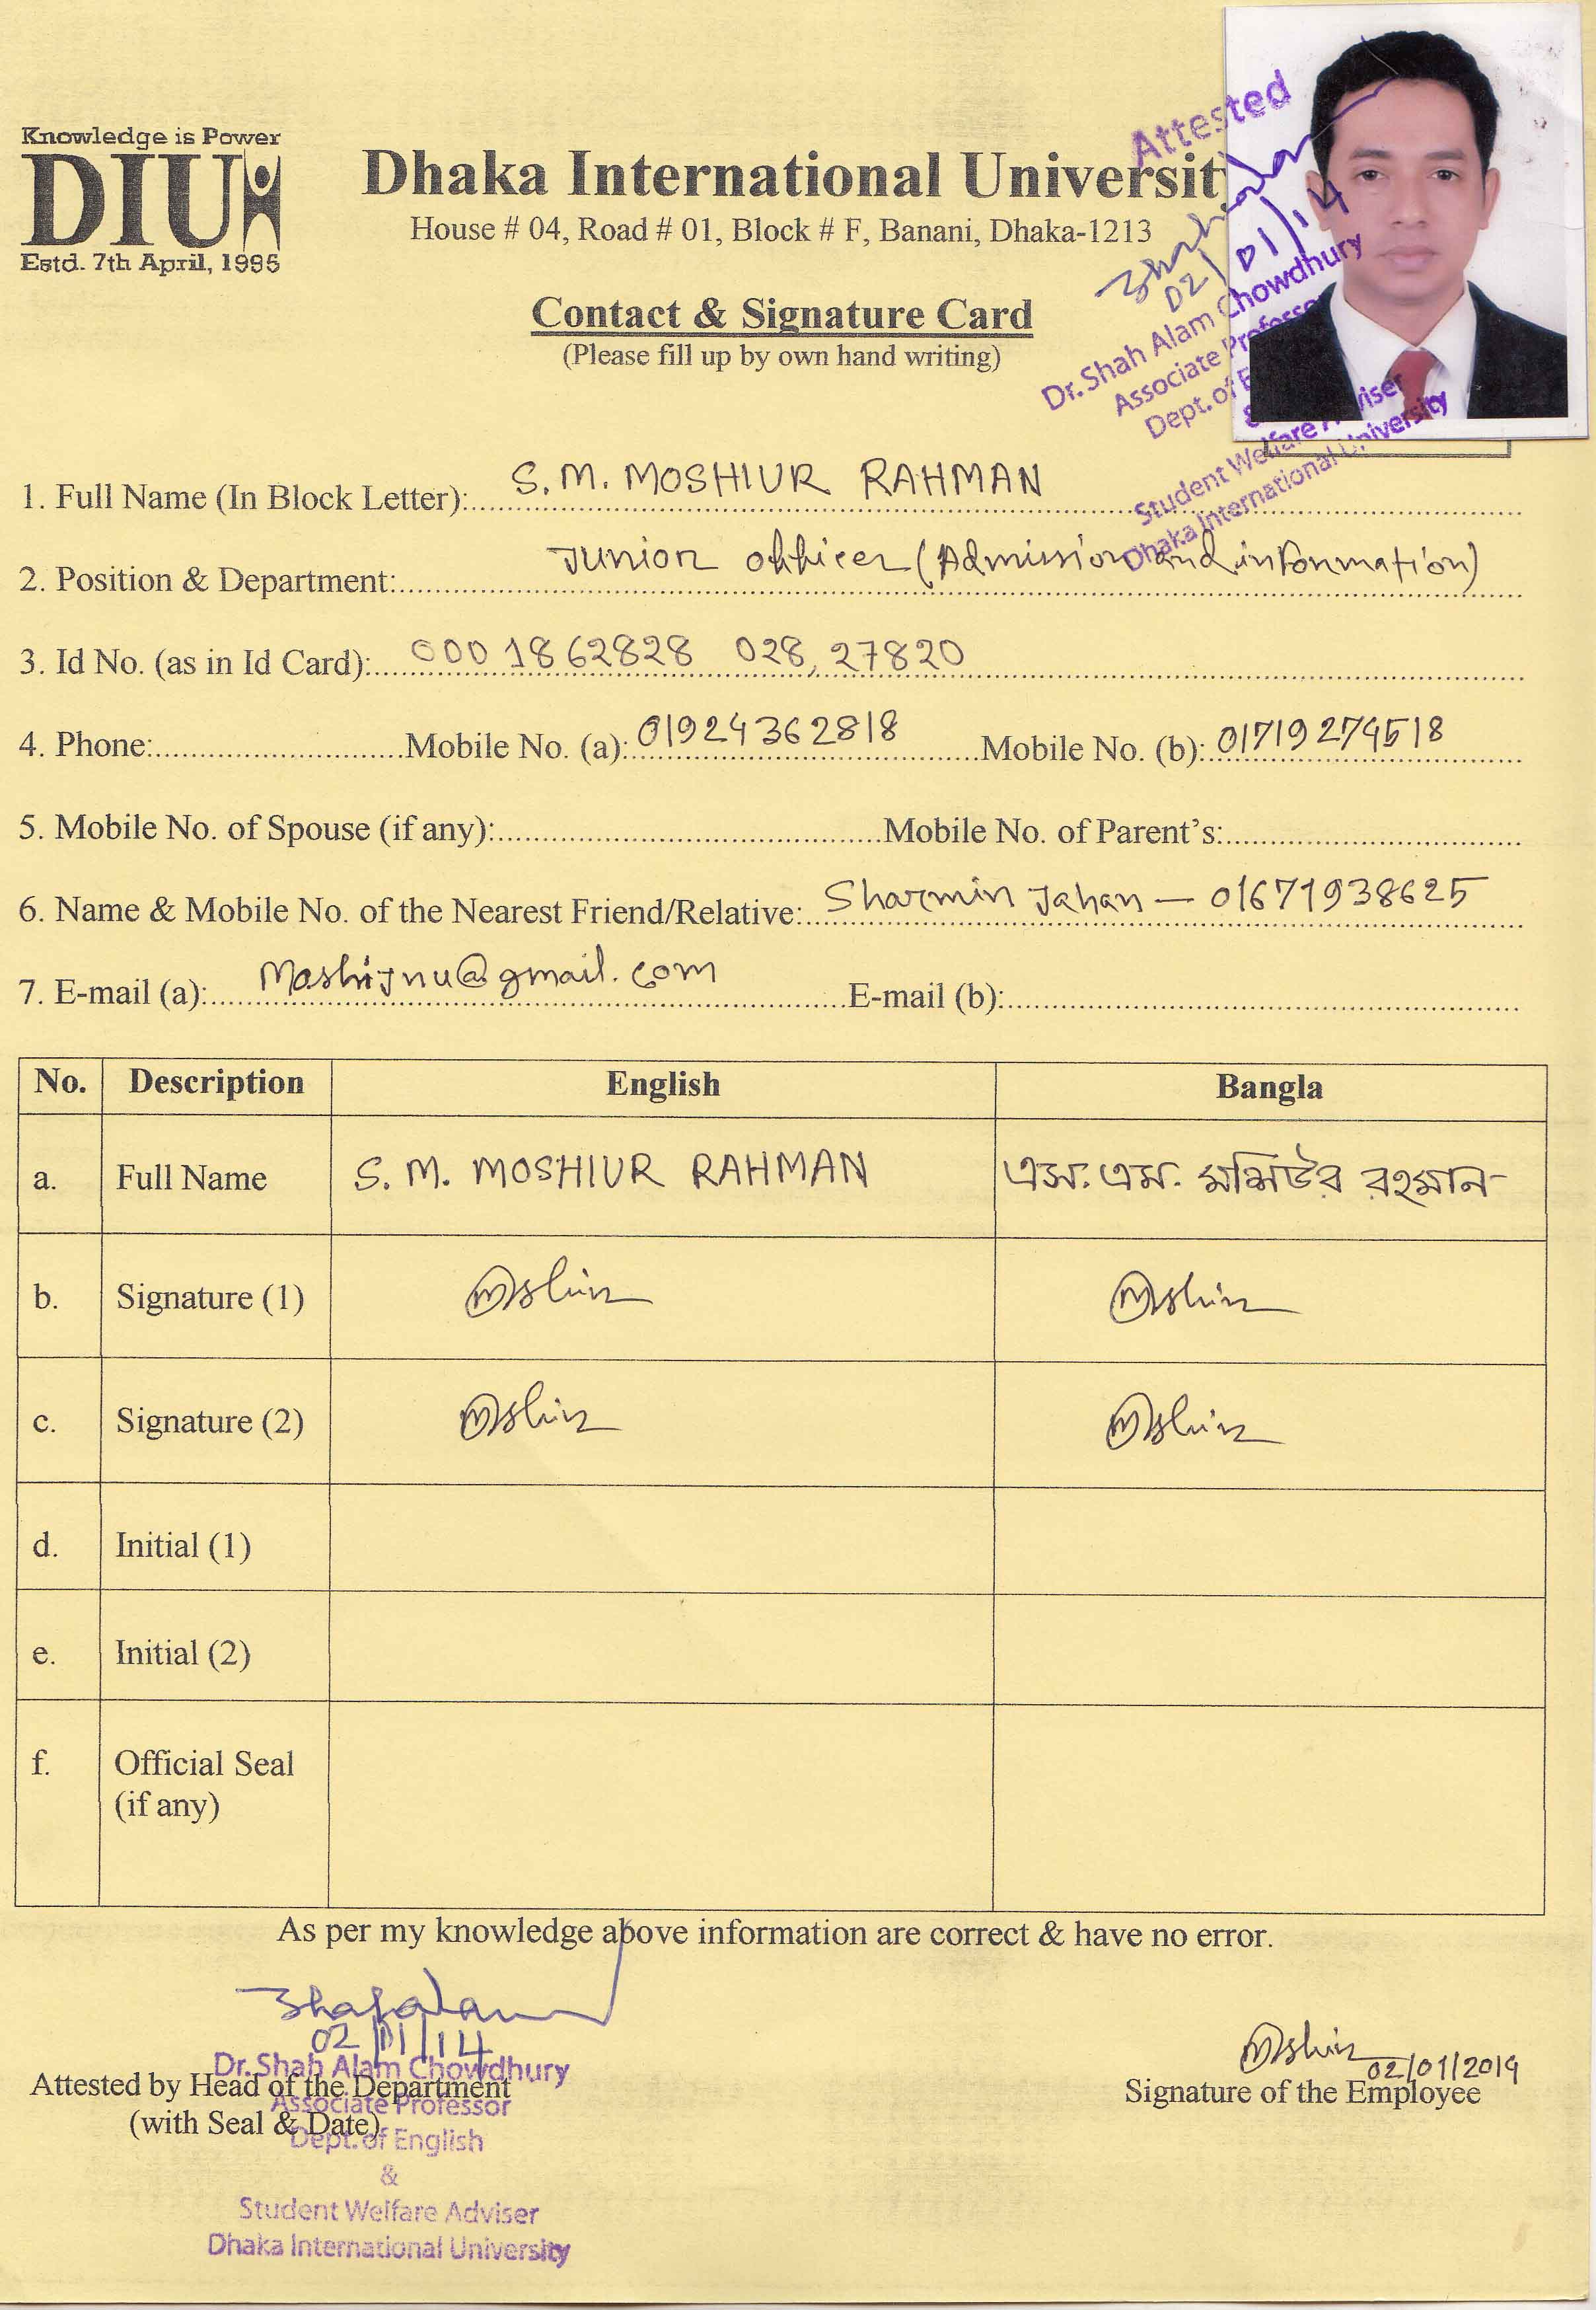 Knowledge is Power
DIU
Estd. 7th April, 1995
Dhaka International Universit
House # 04, Road # 01, Block # F, Banani, Dhaka-1213
Contact & Signature Card
(Please fill up by own hand writing)
Attested
02/01/14
Dr. Shah Alam Chowdhury
Associate Professor
Dept. of E
&
Student Welfare Adviser
Dhaka International University
1. Full Name (In Block Letter): S. M. MOSHIUR RAHMAN
2. Position & Department: Junior officer (Admission and information)
3. Id No. (as in Id Card): 000 1862828 028, 27820
4. Phone: Mobile No. (a): 01924362818 Mobile No. (b): 01719274518
5. Mobile No. of Spouse (if any): Mobile No. of Parent's:
6. Name & Mobile No. of the Nearest Friend/Relative: Sharmin Jahan — 01671938625
7. E-mail (a): Moshijnu@gmail.com E-mail (b):
No. Description English Bangla
a. Full Name S. M. MOSHIUR RAHMAN এস. এম. মশিউর রহমান
b. Signature (1)
c. Signature (2)
d. Initial (1)
e. Initial (2)
f. Official Seal
(if any)
As per my knowledge above information are correct & have no error.
02/01/14
02/01/2014
Dr. Shah Alam Chowdhury
Attested by Head of the Department Signature of the Employee
Associate Professor
(with Seal & Date)
Dept. of English
&
Student Welfare Adviser
Dhaka International University